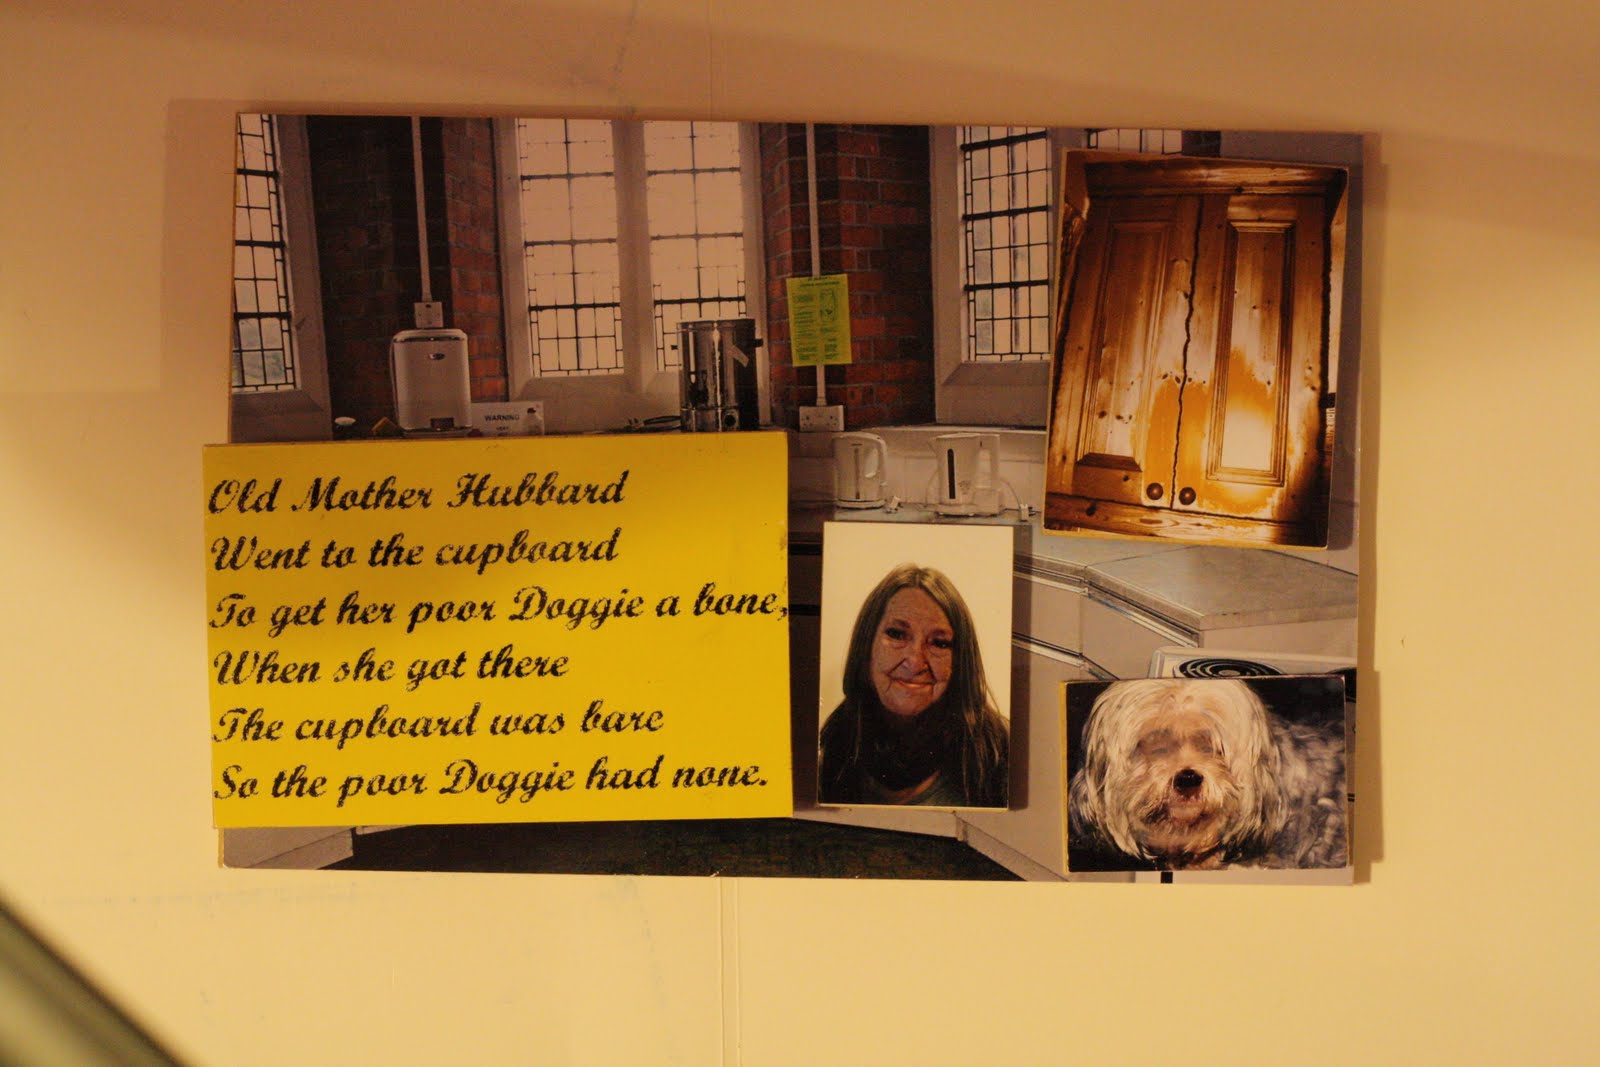 Old Mother Hubbard
Went to the cupboard
To get her poor Doggie a bone,
When she got there
The cupboard was bare
So the poor Doggie had none.
WARNING